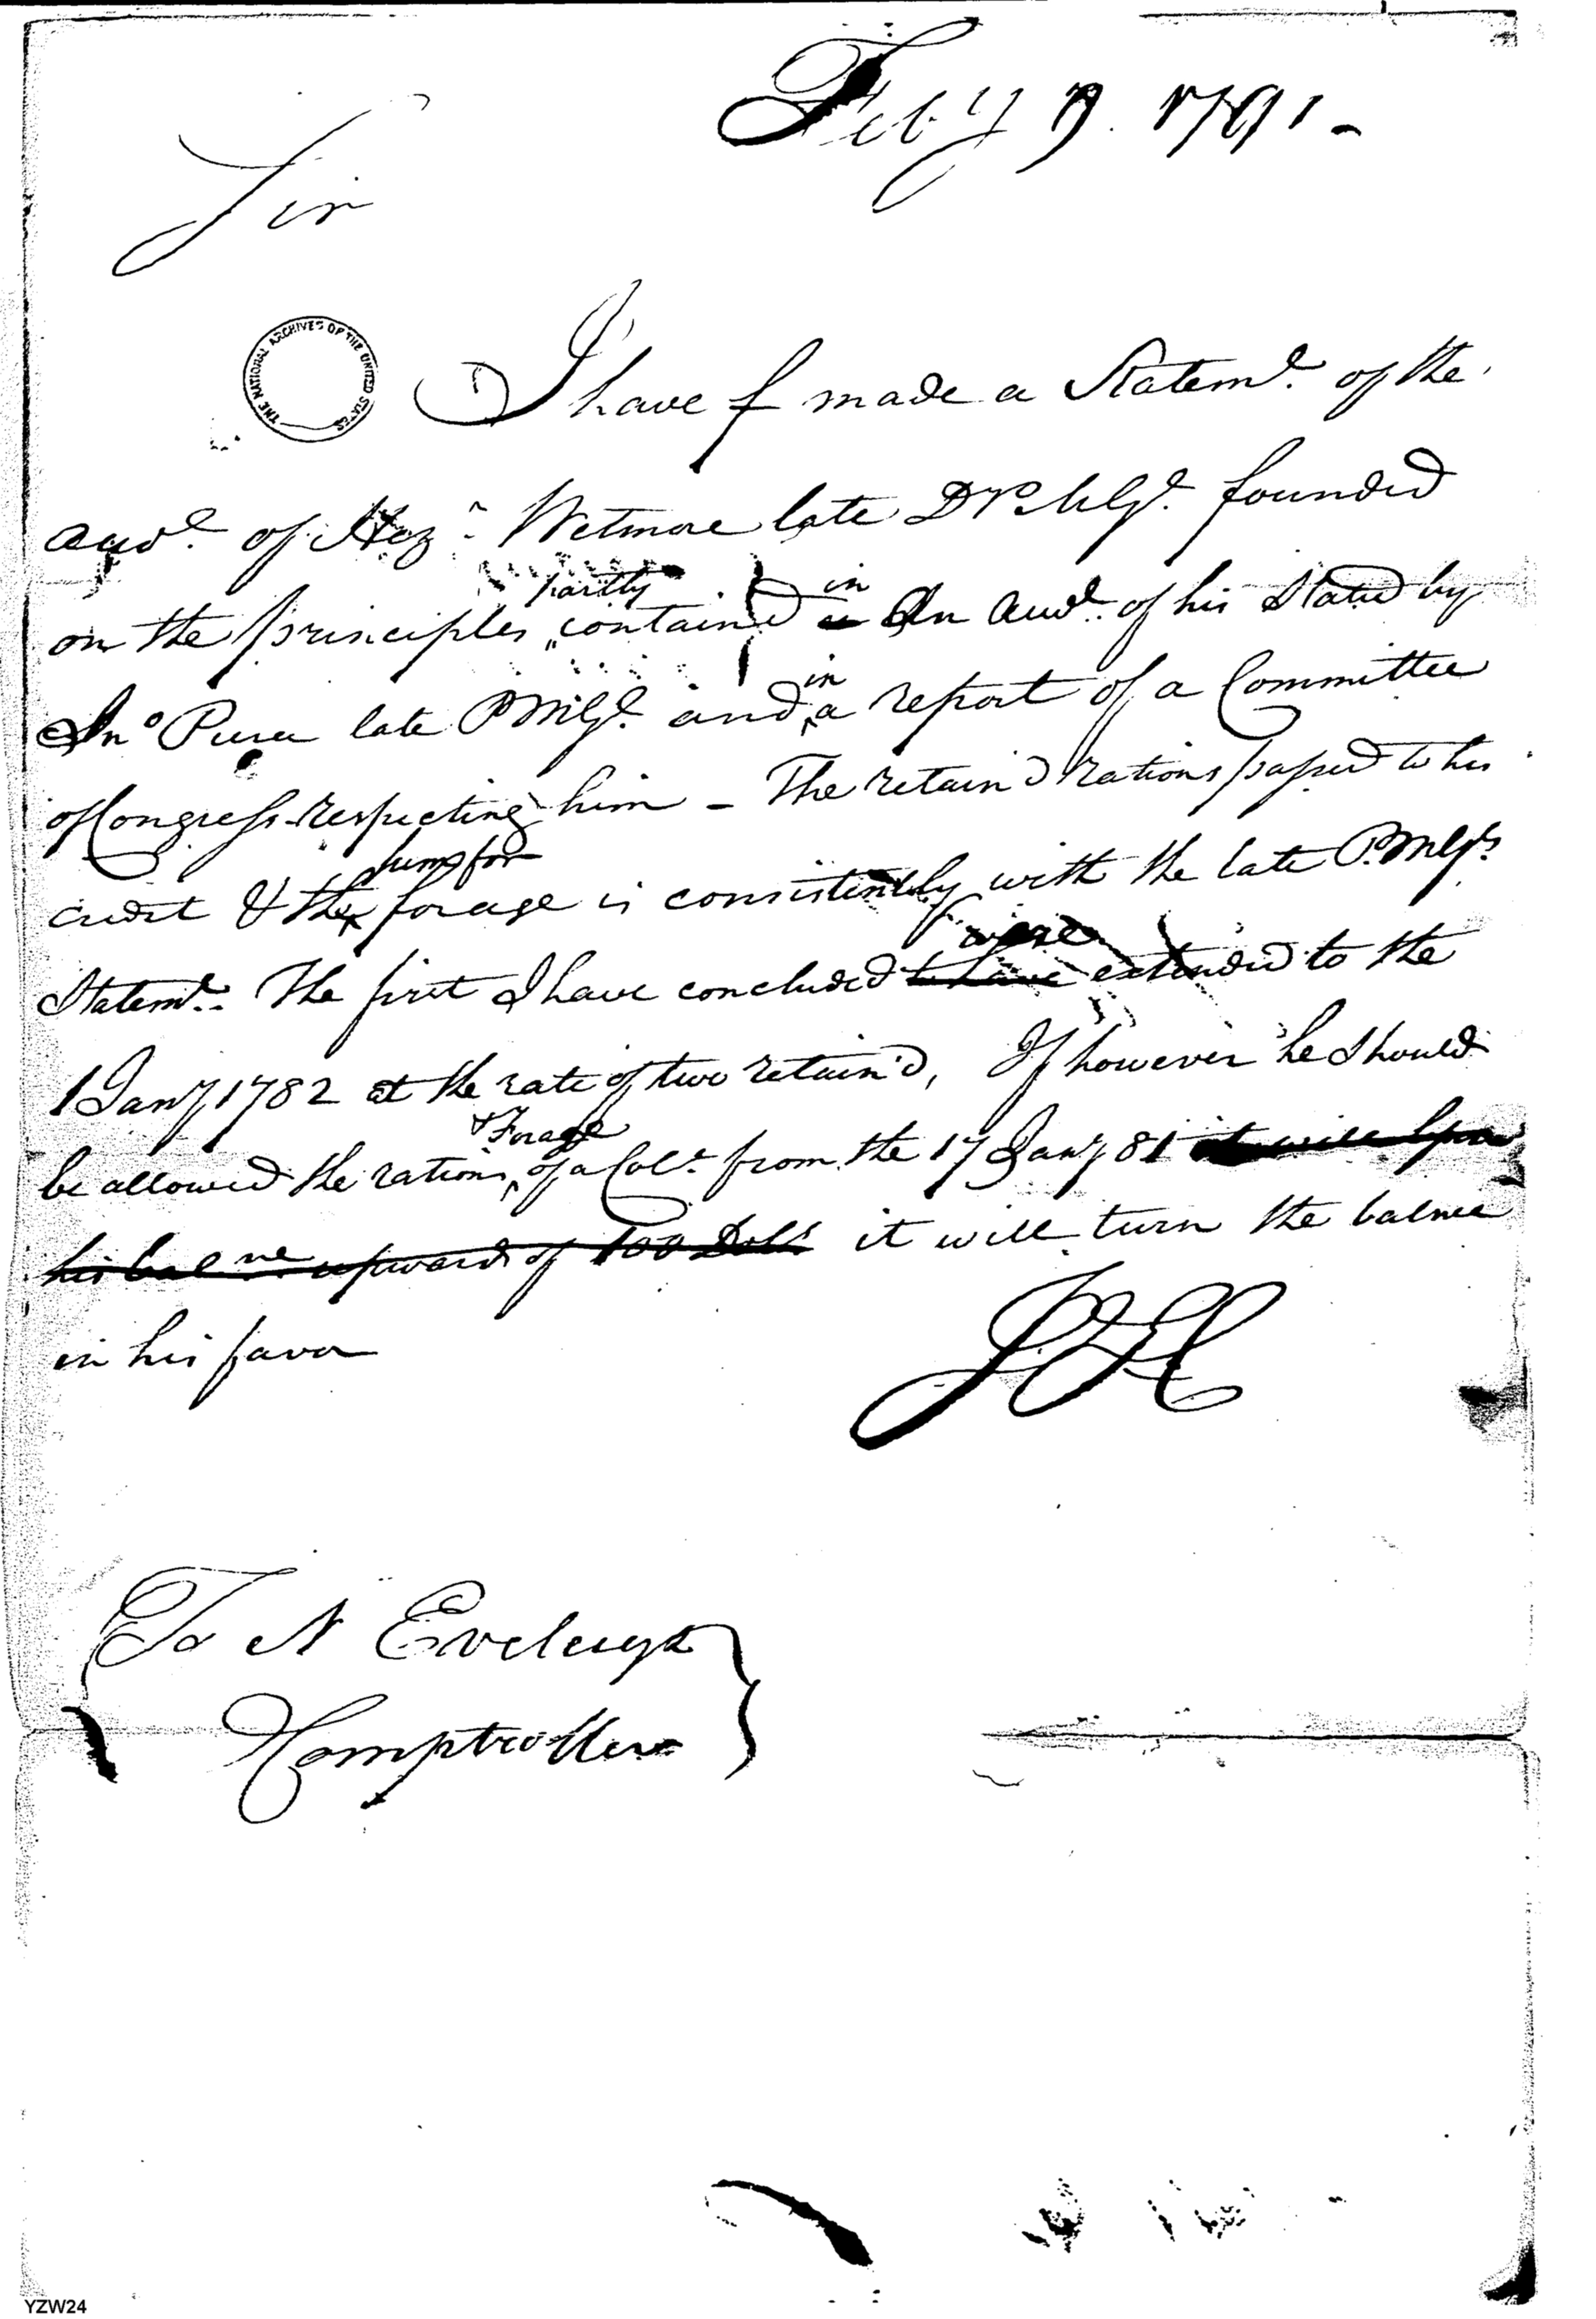 Feby 9. 1791 -
Sir
THE NATIONAL ARCHIVES OF THE UNITED STATES
I have made a Statemt. of the
of Hez: Wetmore late DPMGl. founded
partly in
on the principles contain'd An of his Stated by
in
Jno Pierce late PMGl. and a report of a Committee
of Congress respecting him - The retain'd rations passed to his
sum for
credit & the forage is consistently with the late P.MGls
were
Statemt. The first I have concluded to have extended to the
1 Jany 1782 at the rate of two retain'd, If however he should
& Forage
be allowed the rations of a Colo. from the 17 Jany 81 it will
his balnce upward of 100 Dolls it will turn the balnce
in his favor
To N Eveleigh
Comptroller
YZW24